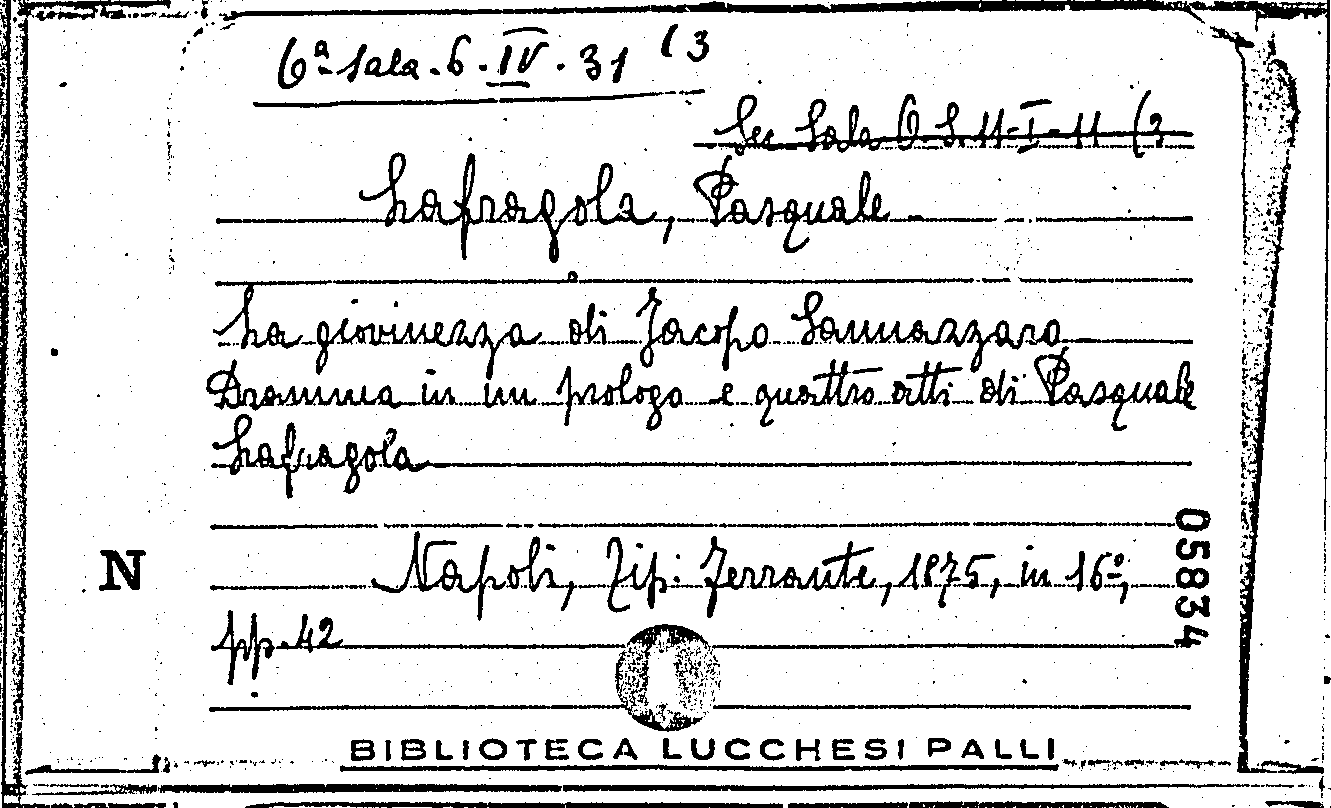 6ª Sala. 6. IV. 31 (3
Sec Sala O S. 11-I-11 (3
Lafragola, Pasquale
La giovinezza di Jacopo Sannazzaro
Dramma in un prologo e quattro atti di Pasquale
Lafragola
Napoli, Tip: Ferrante, 1875, in 16º,
pp. 42
N
05834
BIBLIOTECA LUCCHESI PALLI